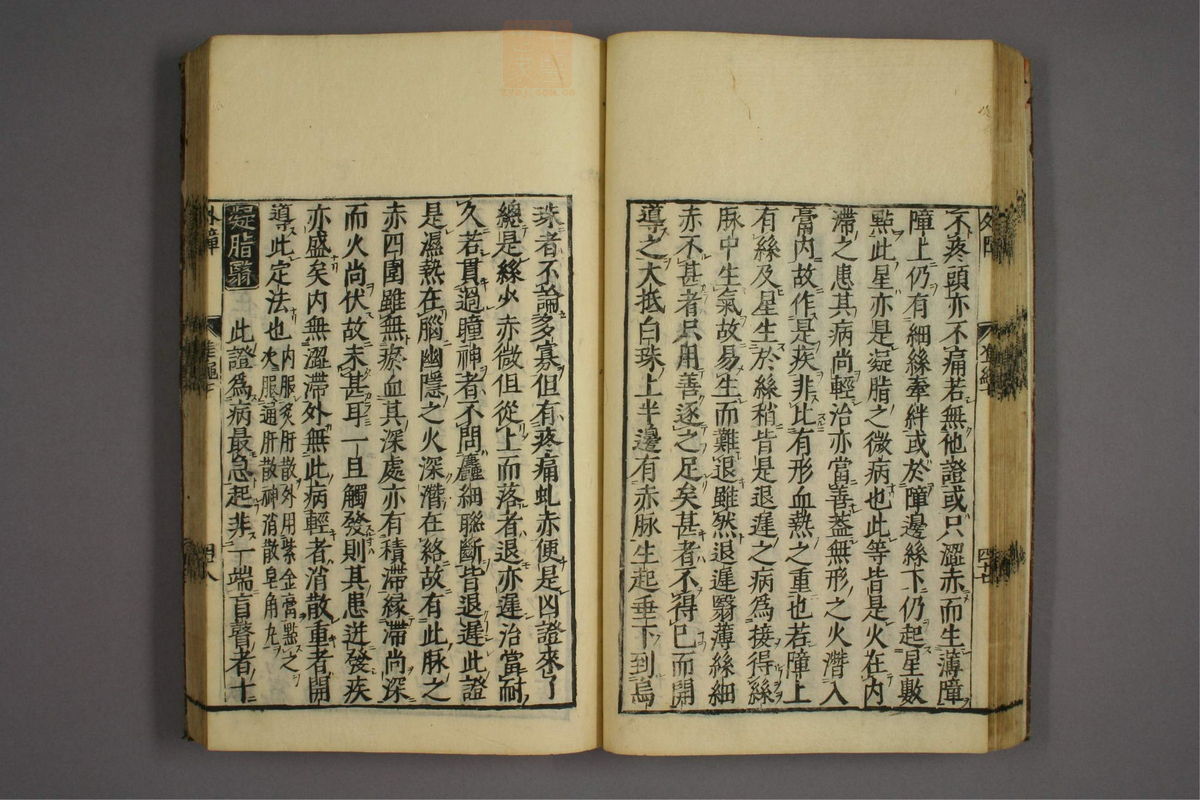 不疼頭亦不痛若無他證或只澀赤而生薄障
障上仍有細絲牽絆或於障邊絲下仍起星數
點此星亦是凝脂之微病也此等皆是火在内
滯之患其病尚輕治亦當善葢無形之火潛入
膏内故作是疾非比有形血熱之重也若障上
有絲及星生於絲稍皆是退遲之病爲接得絲
脉中生氣故易生而難退雖然退遲翳薄絲細
赤不甚者只用善逐之足矣甚者不得已而開
導之大抵白珠上半邊有赤脉生起垂下到烏
珠者不論多寡但有疼痛虬赤便是凶證來了
總是絲少赤微但從上而落者退亦遲治當耐
久若貫過瞳神者不問麤細聮斷皆退遲此證
是濕熱在腦幽隱之火深潛在絡故有此脉之
赤四圍雖無瘀血其深處亦有積滯緣滯尚深
而火尚伏故未甚耳一旦觸發則其患迸發疾
亦盛矣内無澀滯外無此病輕者消散重者開
導此定法也内服炙肝散外用紫金膏點之次服通肝散神消散皂角丸
凝脂翳 此證爲病最急起非一端盲瞽者十
外障